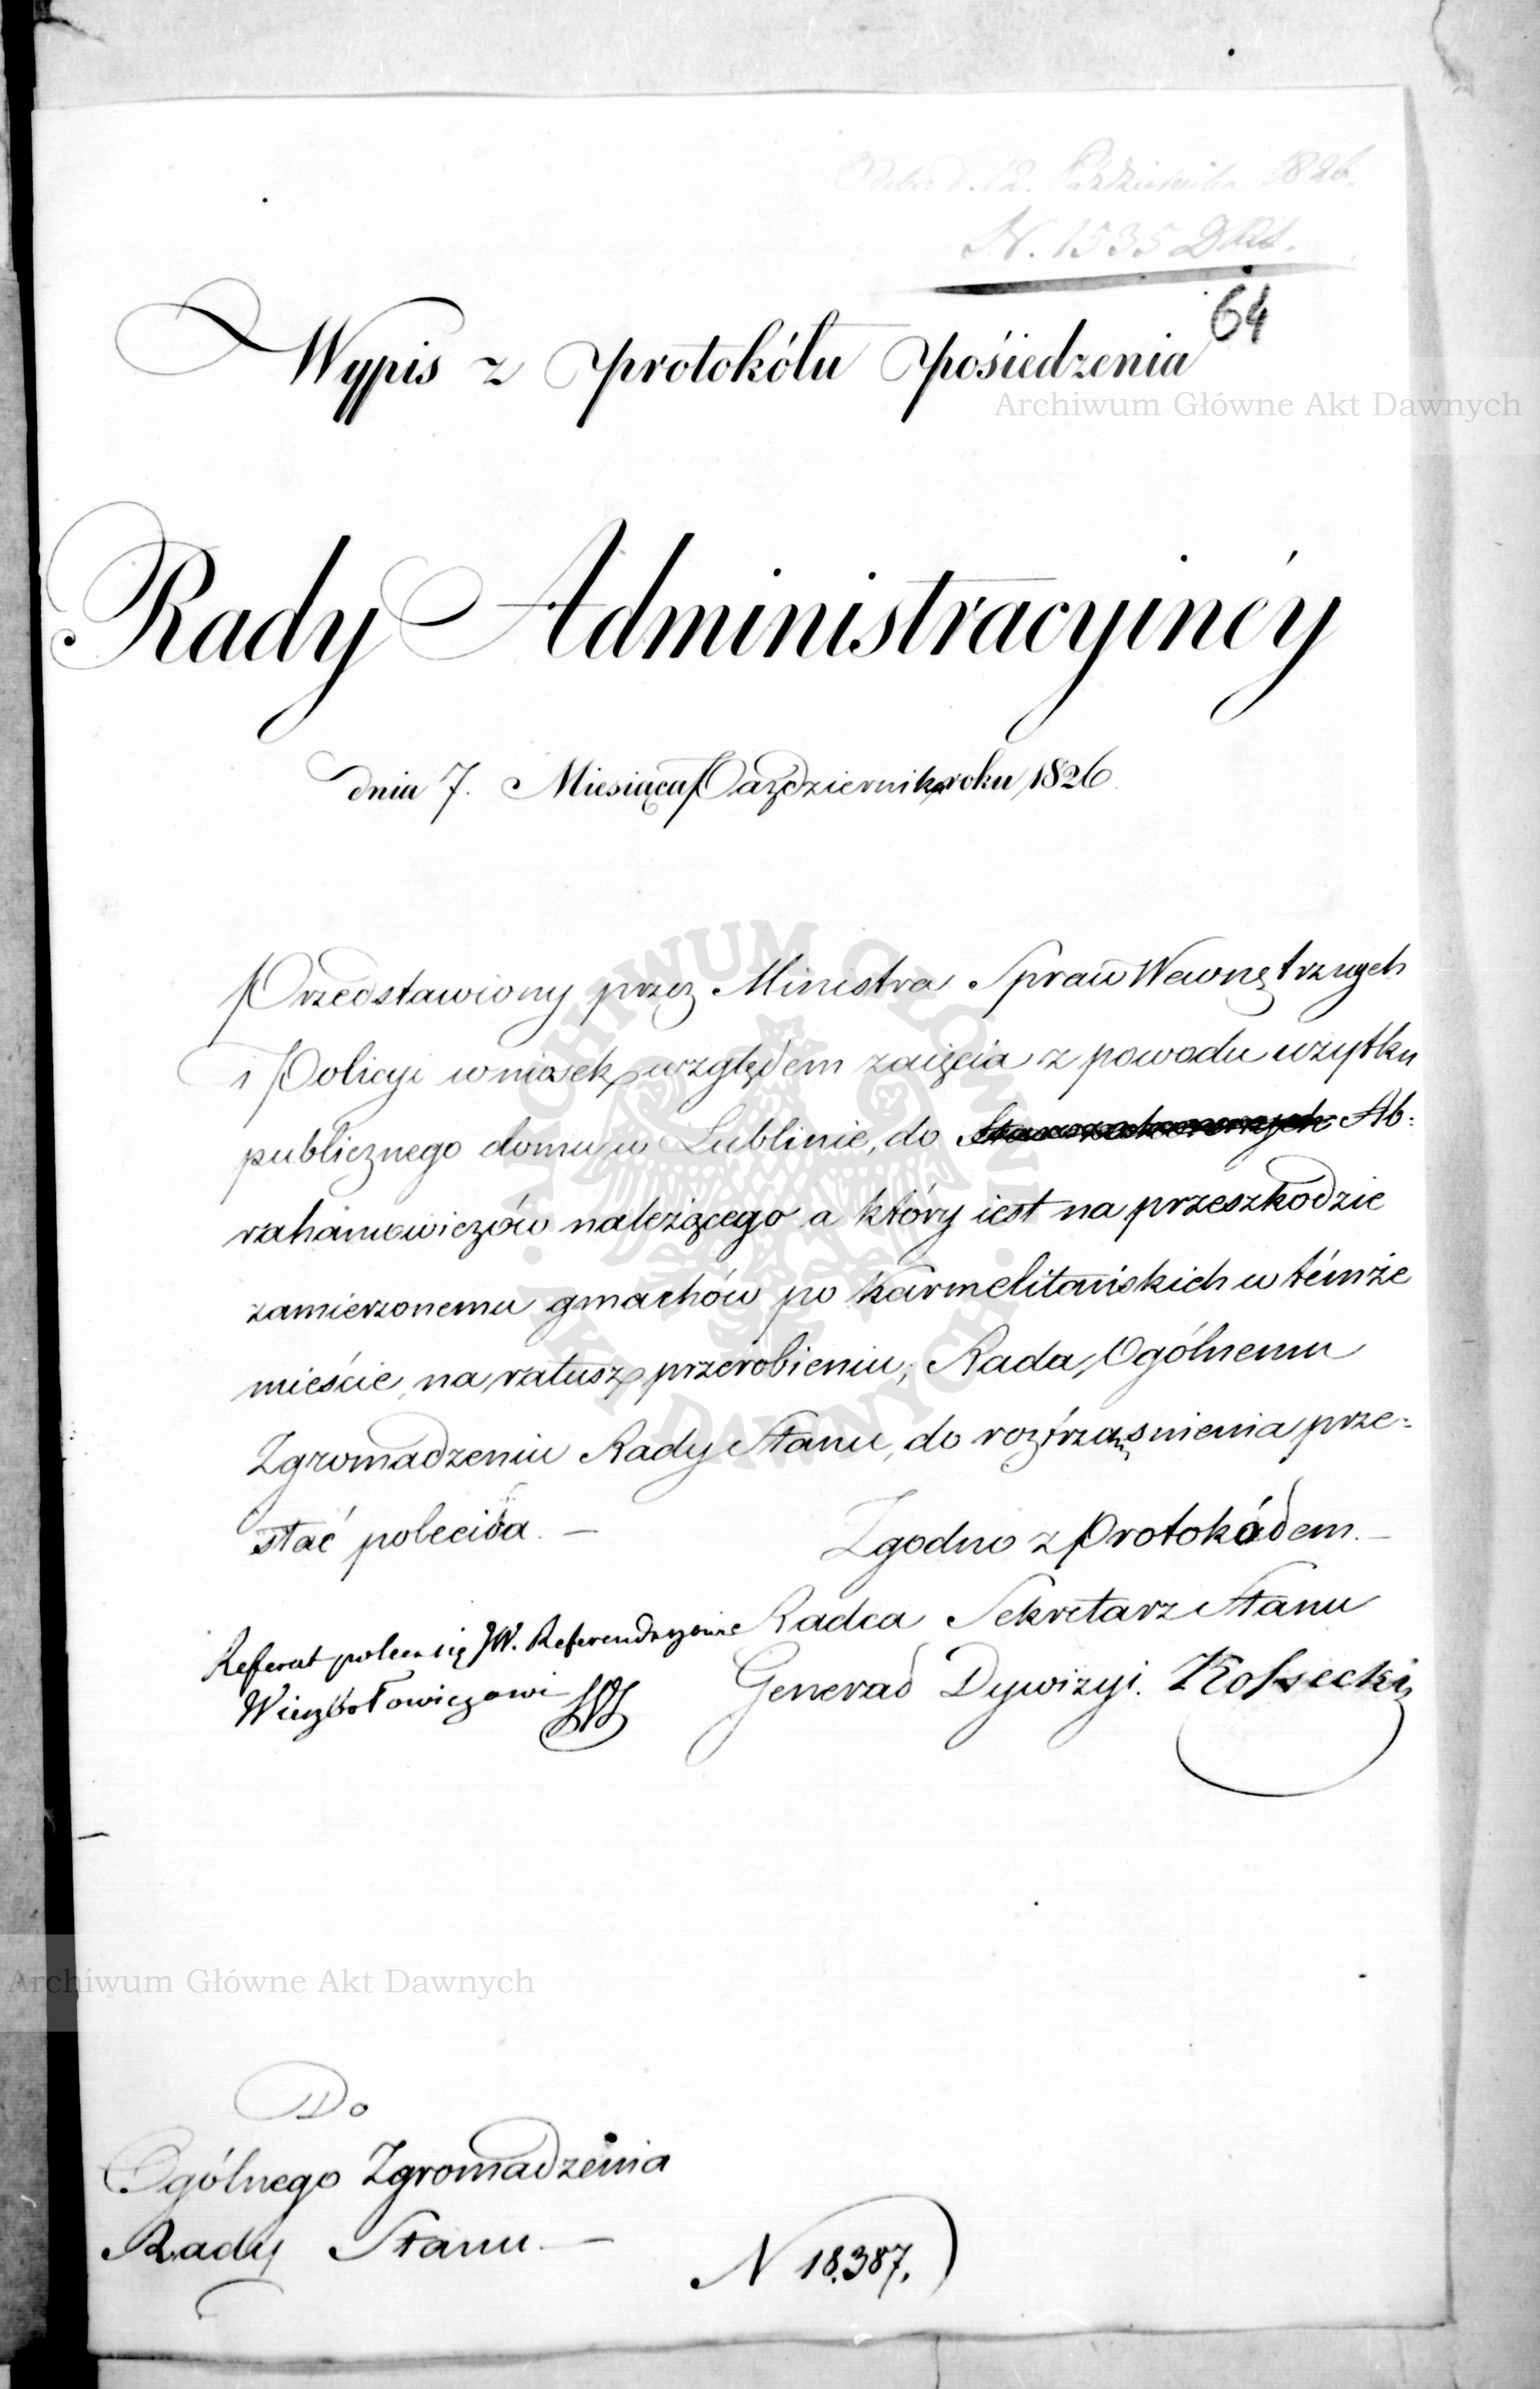 Odebr. d. 12. Października 1826.
N. 1535 DRS.
64
Wypis z protokółu posiedzenia
Archiwum Główne Akt Dawnych
Rady Administracyinéy
dnia 7. Miesiąca Października roku 1826.
Przedstawiony przez Ministra Spraw Wewnętrznych
i Policyi wniosek, względem zaięcia z powodu użytku
publicznego domu w Lublinie, do Ab:
rahamowiczów należącego a który iest na przeszkodzie
zamierzonemu gmachów po Karmelitańskich w témże
mieście, na ratusz przerobieniu, Rada, Ogólnemu
Zgromadzeniu Rady Stanu, do roztrząśnienia prze-
słać poleciła. —
Zgodno z Protokółem. —
Radca Sekretarz Stanu
Generał Dywizyi. Kossecki
Referat poleca się JW. Referendarzowi
Archiwum Główne Akt Dawnych
Do
Ogólnego Zgromadzenia
Rady Stanu. —
N 18,387.